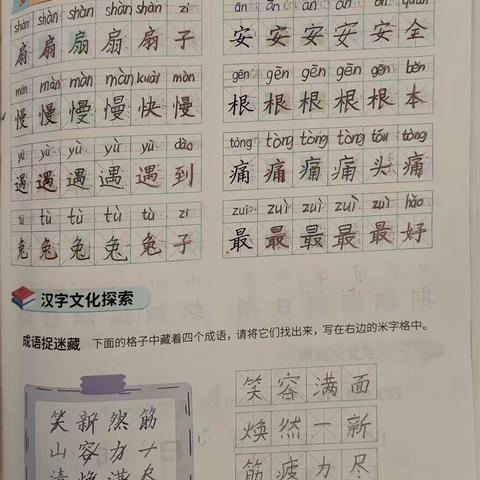 shàn shàn shàn shàn shàn zi
扇 扇 扇 扇 扇 子
màn màn màn màn kuài màn
慢 慢 慢 慢 快 慢
yù yù yù yù yù dào
遇 遇 遇 遇 遇 到
tù tù tù tù tù zi
兔 兔 兔 兔 兔 子
ān ān ān ān ān quán
安 安 安 安 安 全
gēn gēn gēn gēn gēn běn
根 根 根 根 根 本
tòng tòng tòng tòng tóu tòng
痛 痛 痛 痛 头 痛
zuì zuì zuì zuì zuì hǎo
最 最 最 最 最 好
汉字文化探索
成语捉迷藏 下面的格子中藏着四个成语，请将它们找出来，写在右边的米字格中。
笑 新 然 筋
山 容 力
笑 容 满 面
焕 然 一 新
筋 疲 力 尽